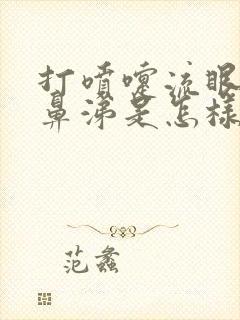 打喷嚏流眼
鼻涕是怎样
范蠡